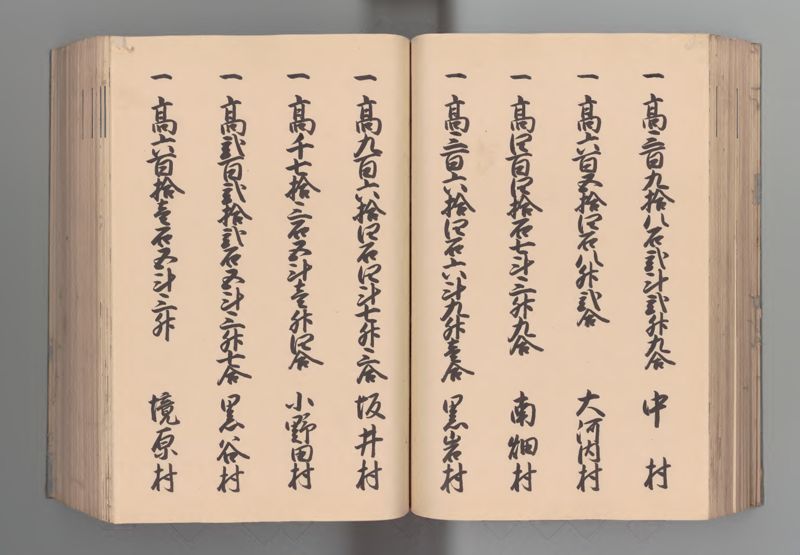 一 高三百九拾八石弐斗弐升九合 中村
一 高六百五拾四石八升弐合 大河内村
一 高四百四拾石七斗三升九合 南畑村
一 高三百六拾四石六斗九升壱合 黒岩村
一 高九百六拾四石四斗七升三合 坂井村
一 高千七拾三石五斗壱升四合 小野田村
一 高弐百弐拾弐石五斗三升七合 黒谷村
一 高六百拾壱石五斗三升 境原村